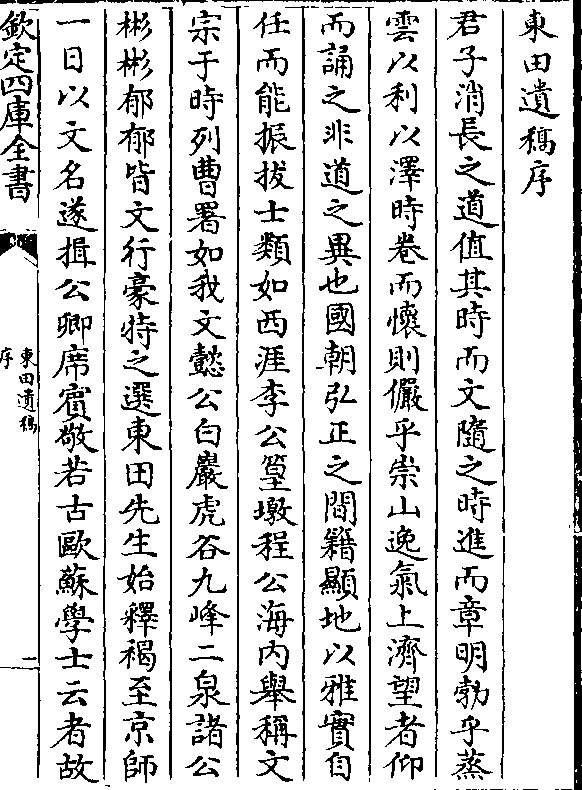 東田遺稿序
君子消長之道值其時而文隨之時進而章明勃乎蒸
雲以利以澤時卷而懷則儼乎崇山逸氣上濟望者仰
而誦之非道之異也國朝弘正之間籍顯地以雅實自
任而能振拔士類如西涯李公篁墩程公海內舉稱文
宗于時列曹署如我文懿公白巖虎谷九峰二泉諸公
彬彬郁郁皆文行豪特之選東田先生始釋褐至京師
一日以文名遂揖公卿席賓敬若古歐蘇學士云者故
欽定四庫全書
東田遺稿
序
二